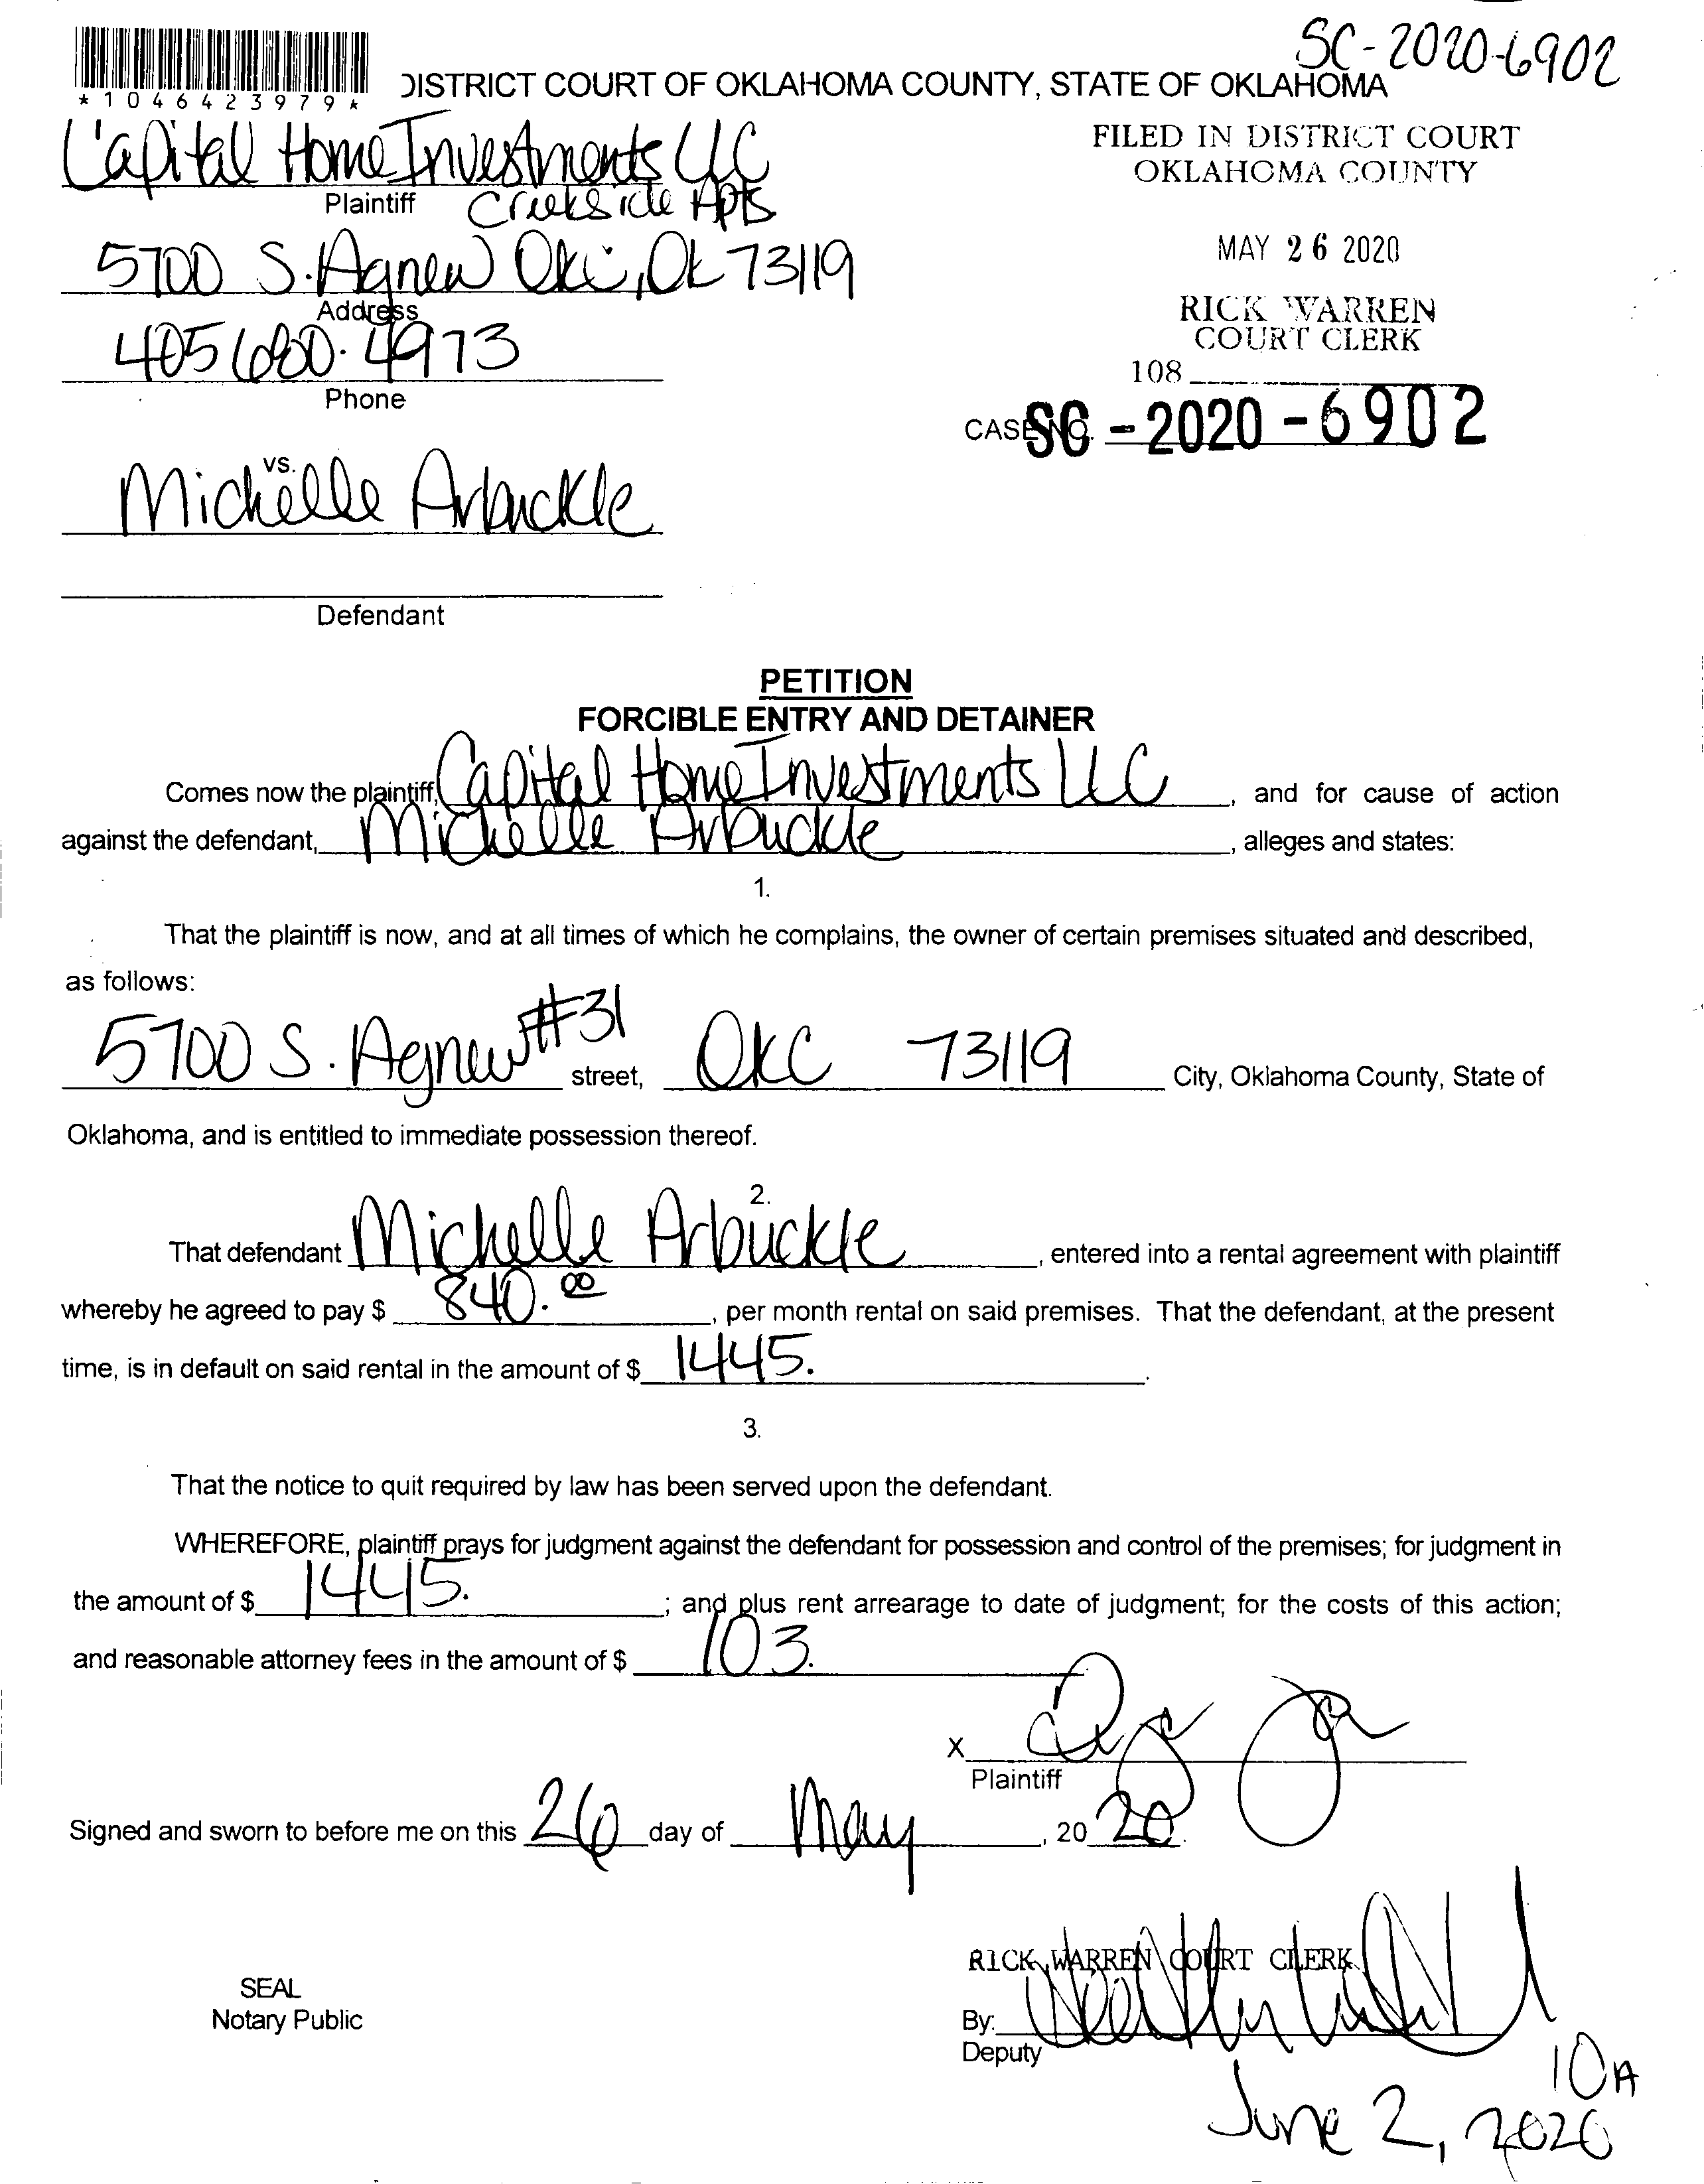 SC-2020-6902
*1046423979*
DISTRICT COURT OF OKLAHOMA COUNTY, STATE OF OKLAHOMA
Capital Home Investments LLC
Plaintiff Creekside Apts
5700 S. Agnew Okc, Ok 73119
Address
405 680. 4973
Phone
FILED IN DISTRICT COURT
OKLAHOMA COUNTY
MAY 26 2020
RICK WARREN
COURT CLERK
108
CASE NO. SC - 2020 - 6902
vs.
Michelle Arbuckle
Defendant
PETITION
FORCIBLE ENTRY AND DETAINER
Comes now the plaintiff, Capital Home Investments LLC, and for cause of action
against the defendant, Michelle Arbuckle, alleges and states:
1.
That the plaintiff is now, and at all times of which he complains, the owner of certain premises situated and described,
as follows:
5700 S. Agnew #31 street, Okc 73119 City, Oklahoma County, State of
Oklahoma, and is entitled to immediate possession thereof.
2.
That defendant Michelle Arbuckle, entered into a rental agreement with plaintiff
whereby he agreed to pay $ 840.00, per month rental on said premises. That the defendant, at the present
time, is in default on said rental in the amount of $ 1445..
3.
That the notice to quit required by law has been served upon the defendant.
WHEREFORE, plaintiff prays for judgment against the defendant for possession and control of the premises; for judgment in
the amount of $ 1445.; and plus rent arrearage to date of judgment; for the costs of this action;
and reasonable attorney fees in the amount of $ 103.
X
Plaintiff
Signed and sworn to before me on this 26 day of May, 20 20.
RICK WARREN COURT CLERK
SEAL
Notary Public
By:
Deputy
10A
June 2, 2020